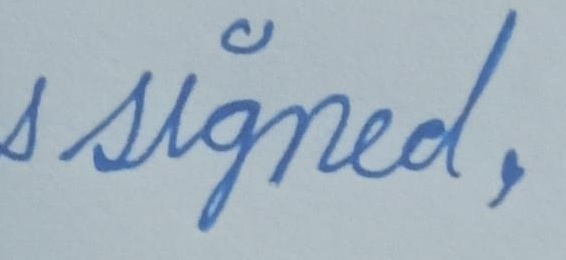 s signed,